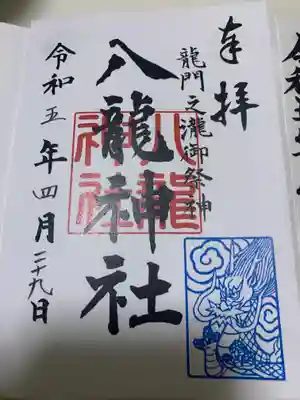 奉拝
龍門之瀧御祭神
八龍神社
八龍神社
令和五年四月二十九日